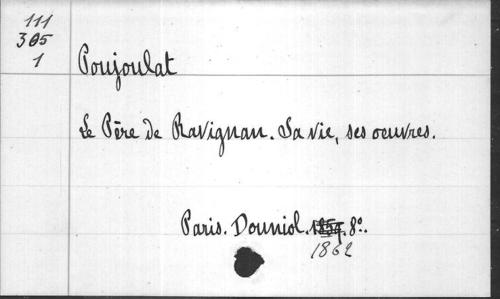 111
365
1
Poujoulat
Le Père de Ravignan. Sa vie, ses oeuvres.
Paris. Douniol. 1859. 8°.
1862